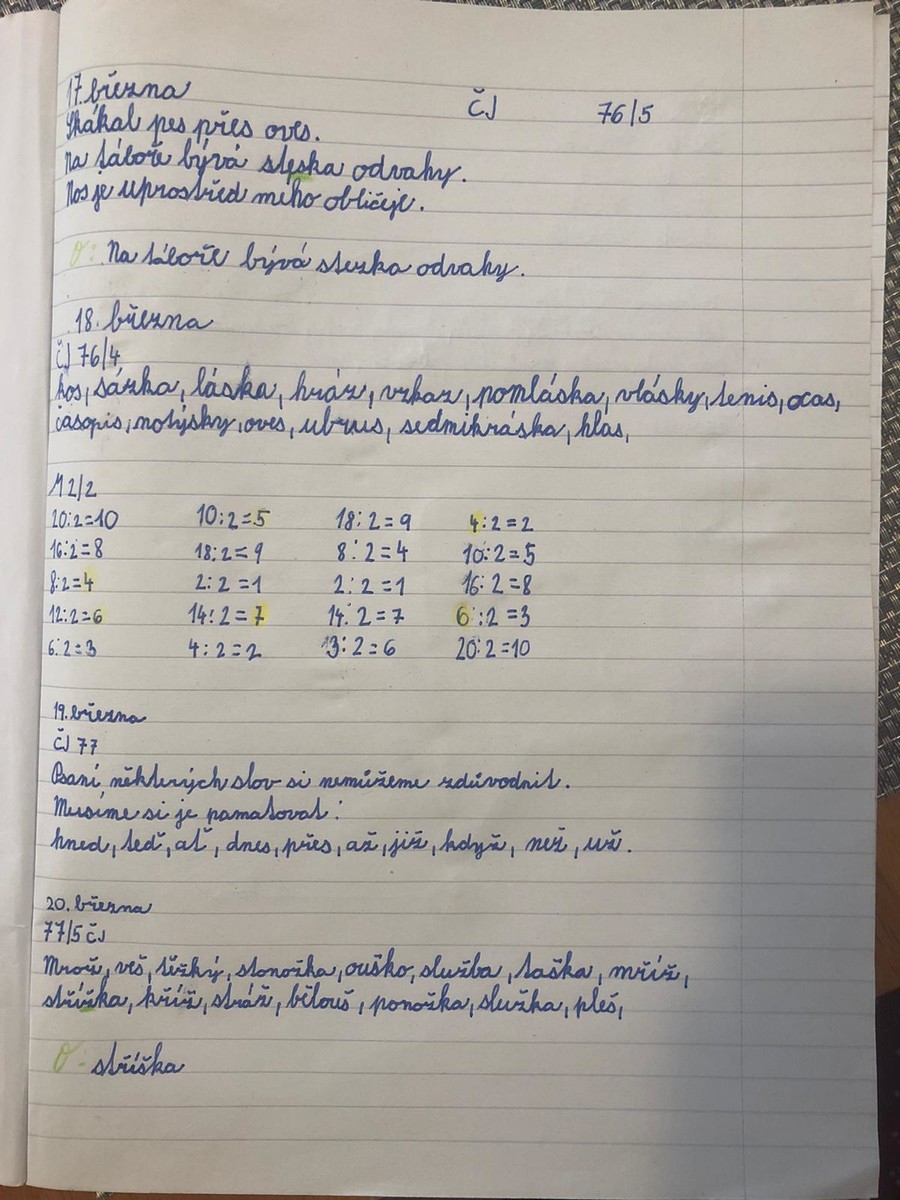 17. března ČJ 76/5
Skákal pes přes oves.
Na táboře bývá steska odvahy.
Nos je uprostřed mého obličeje.
O: Na táboře bývá stezka odvahy.
18. března
ČJ 76/4
kos, sázka, láska, hráz, vzkaz, pomláska, vlásky, tenis, ocas,
časopis, notýsky, oves, ubrus, sedmikráska, hlas,
M 2/2
20:2=10 10:2=5 18:2=9 4:2=2
16:2=8 18:2=9 8:2=4 10:2=5
8:2=4 2:2=1 2:2=1 16:2=8
12:2=6 14:2=7 14:2=7 6:2=3
6:2=3 4:2=2 :2=6 20:2=10
19. března
ČJ 77
Psaní některých slov si nemůžeme zdůvodnit.
Musíme si je pamatovat:
hned, teď, ať, dnes, přes, až, již, když, než, už.
20. března
77/5 ČJ
Mrož, veš, těžký, stonožka, ouško, služba, taška, mříž,
střížka, kříž, stráž, bělouš, ponožka, služka, pleš,
O- stříška